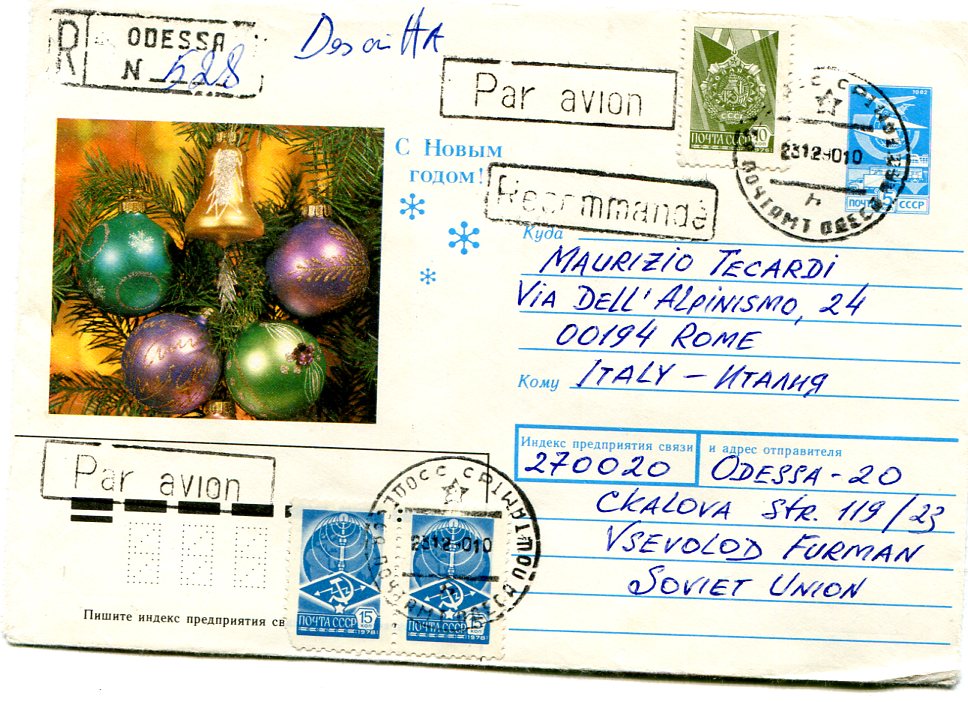 R
ODESSA
N 528
Par avion
ПОЧТА СССР
10
1978
1982
5
СССР
2312-9010
ПОЧТАМТ ОДЕССА
С Новым
годом!
Recommandé
Куда
MAURIZIO TECARDI
VIA DELL' ALPINISMO, 24
00194 ROME
Кому
ITALY – ИТАЛИЯ
Индекс предприятия связи
и адрес отправителя
270020
ODESSA - 20
CKALOVA STR. 119/23
VSEVOLOD FURMAN
SOVIET UNION
Par avion
Пишите индекс предприятия св
ПОЧТА СССР
15
КОП
1978
ПОЧТА СССР
15
КОП
1978